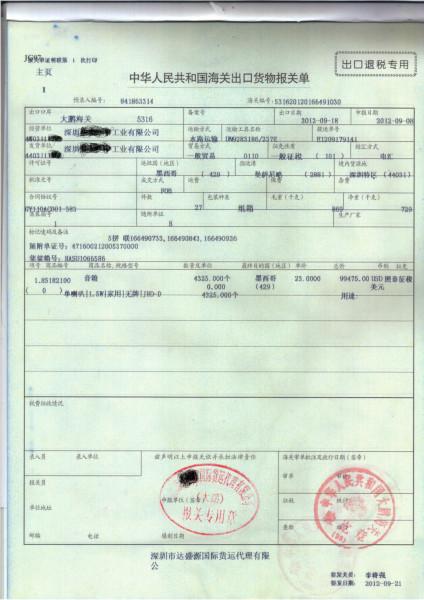 JG07
报关单证明联第 1 次打印
主页
1
出口退税专用
中华人民共和国海关出口货物报关单
预录入编号: 841863314
海关编号:531620120166491030
出口口岸 备案号 出口日期 申报日期
大鹏海关 5316 2012-09-18 2012-09-08
经营单位 运输方式 运输工具名称 提运单号
深圳 工业有限公司 水路运输
发货单位 贸易方式 征免性质 结汇方式
深圳 工业有限公司 一般贸易 0110 一般征税 (101) 电汇
许可证号 运抵国(地区) 指运港 境内货源地
墨西哥 (429) (2881) 深圳特区 (44031)
批准文号 成交方式 运费 保费 杂费
FOB
合同协议号 件数 包装种类 毛重(千克) 净重(千克)
27 纸箱 729
集装箱号 随附单据 生产厂家
1 B
标记唛码及备注
随附单证号:471600212005370000
依据编号:HASU1066586
项号 商品编号 商品名称、规格型号 数量及单位 最终目的国(地区) 单价 总价 币制 征免
1.85182100 音箱 4325.000个 墨西哥 23.0000 99475.00 USD 照章征税
( 0) 0.000 (429) 美元
单喇叭|1.5W|家用|无牌|JHD-D 4325.000个 用途:
税费征收情况
录入员 录入单位 兹声明以上申报无讹并承担法律责任 海关审单批注及放行日期(签章)
报关员
单位地址 申报单位(签章)
国际货运代理有限公司
(大鹏)
报关专用章
邮编 电话 填制日期
审单
征税
查验
深圳市达盛源国际货运代理有限公
司
签发关员: 李锋强
签发日期: 2012-09-21